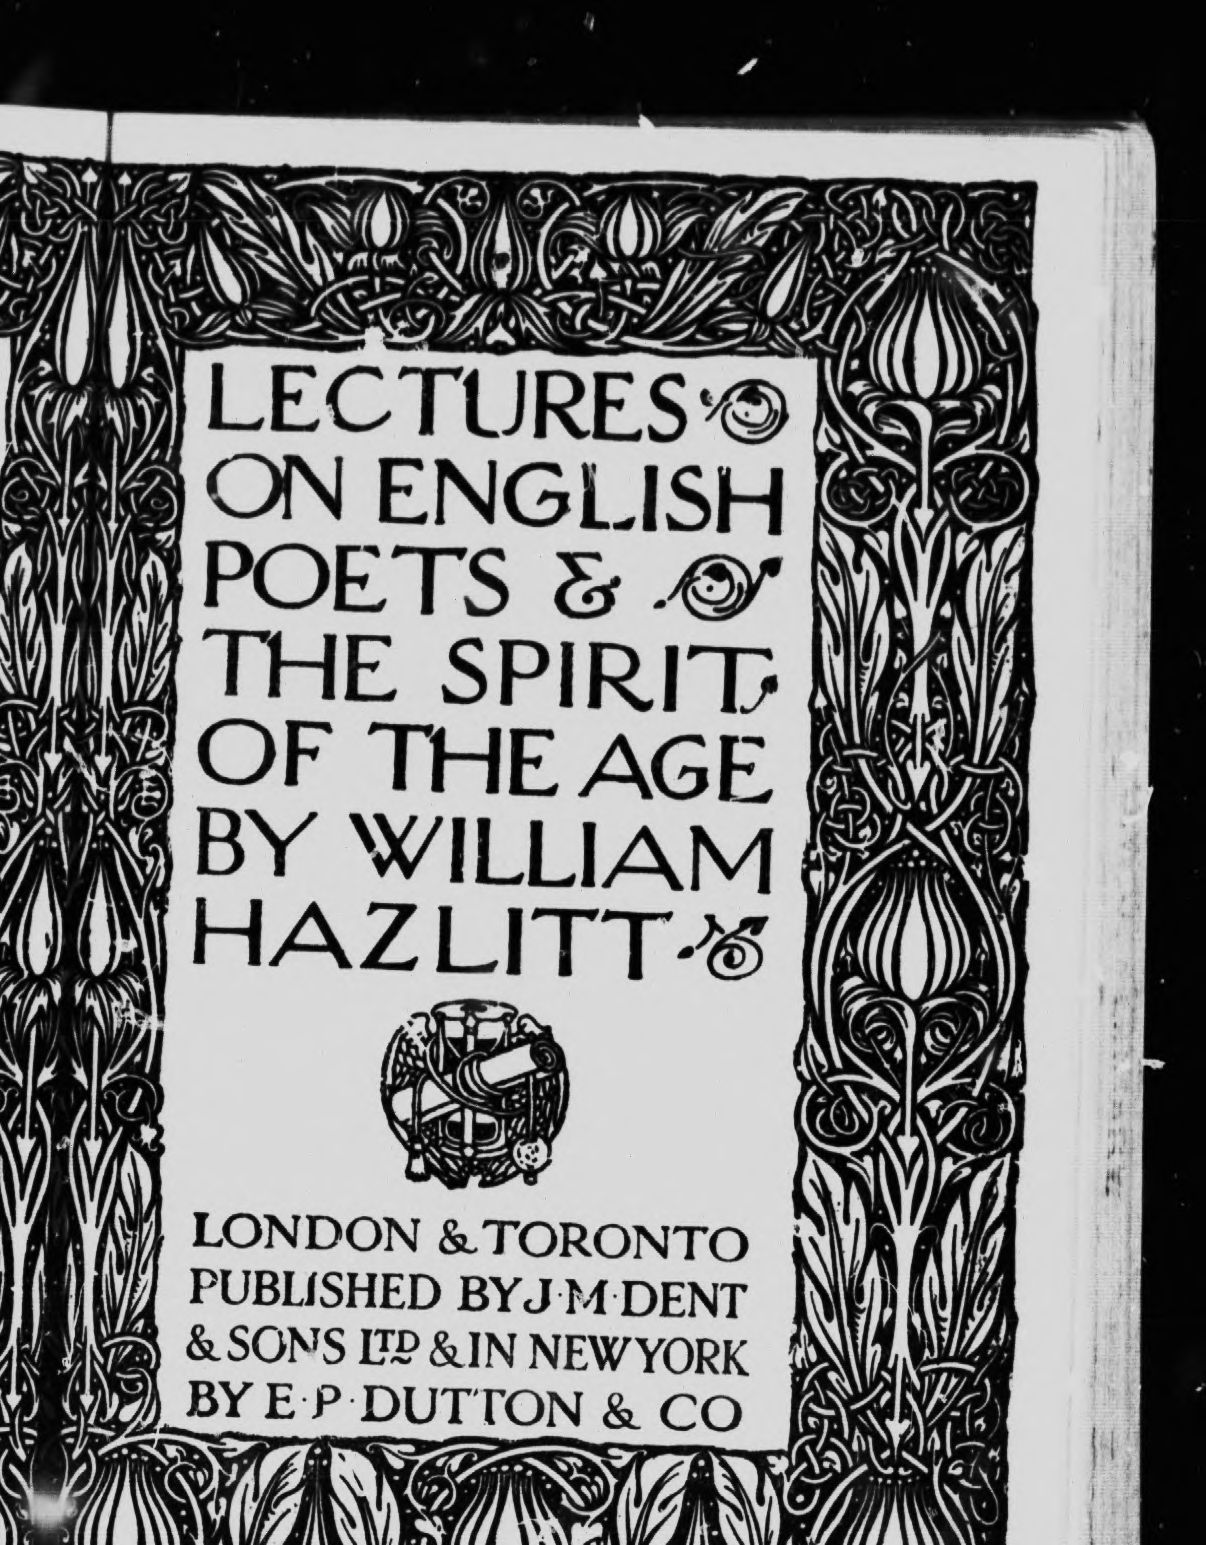 LECTURES
ON ENGLISH
POETS &
THE SPIRIT
OF THE AGE
BY WILLIAM
HAZLITT
LONDON & TORONTO
PUBLISHED BY J·M·DENT
& SONS LTD & IN NEW YORK
BY E·P·DUTTON & CO